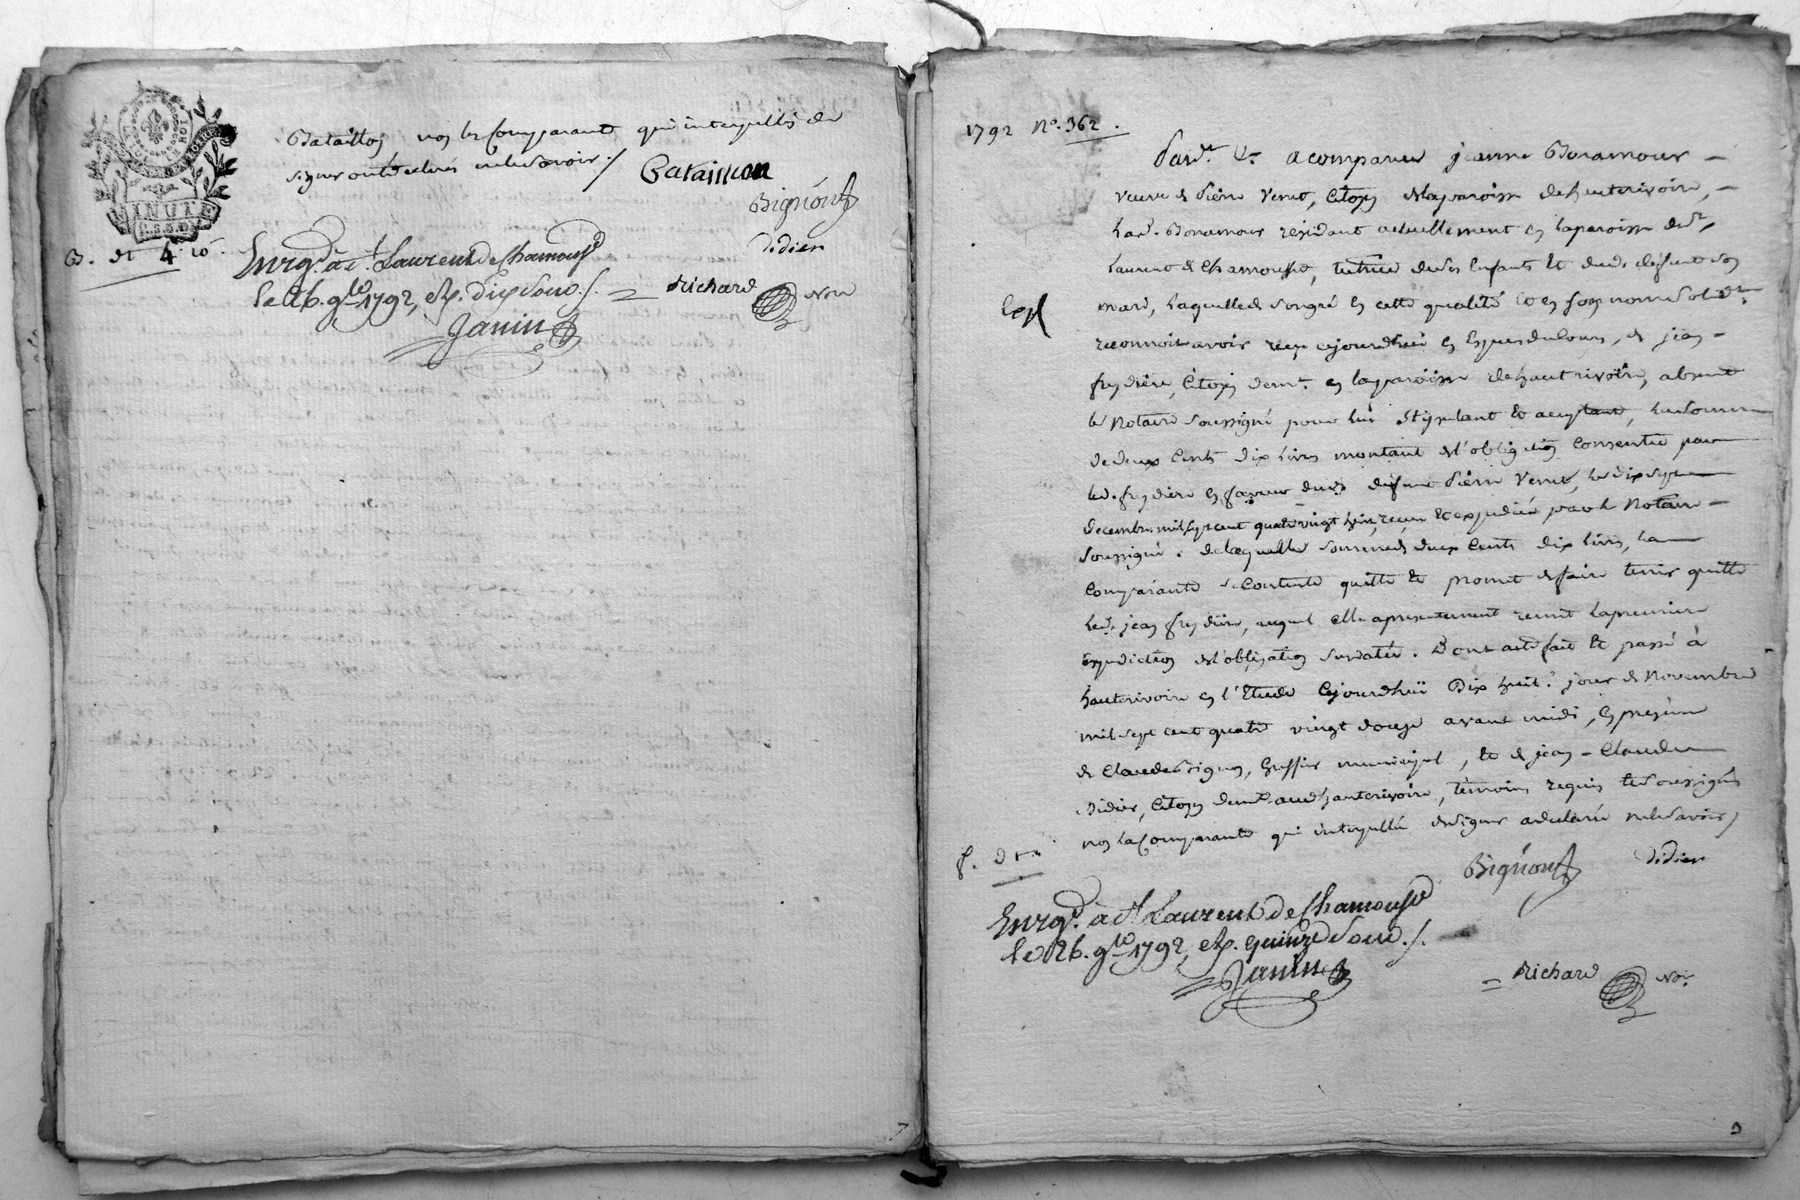 MINUTE
Bataillon non les Comparants qui interpellés de
signer ont declarés ne le savoir ./
Bataillon
Bignon
Didier
Enrg.é à St Laurent de Chamousset
le 26. 9bre 1792, R. dix sous ./.
Richard Nore
Janin
1792 N.° 362.
Pard.t &.a a comparue jeanne Bonamour
veuve de Pierre Venet, Citoyen de la paroisse de hauterivoire,
lad. Bonamour résidant actuellement en la paroisse de St
Laurent de Chamousset, tutrice de ses Enfants et dud. defunt son
mari, laquelle de son gré en cette qualité et en son nom
reconnoit avoir reçu cejourd'hui en Especes du Cours, de jean
freydière, Citoyen demt. en la paroisse de hauterivoire, absent
le Notaire soussigné pour lui stipulant et acceptant, la somme
de deux Cents dix livres montant de l'obligation consentie par
led. freydière en faveur dud. defunt Pierre Venet, le dix sept
decembre mil sept cent quatre vingt huit, reçue et expédiée par le Notaire
soussigné. de laquelle somme de deux Cents dix livres, la
Comparante se contente quitte et promet de faire tenir quitte
led. jean freydière, auquel elle a presentement remit la premiere
Expedition de l'obligation susdatée. Dont acte fait et passé à
hauterivoire en l'Etude Cejourdhui Dix huit.e jour de Novembre
mil sept cent quatre vingt douze avant midi, en présence
de Claude Bignon, Greffier municipal, et de jean-Claude
Didier, Citoyen demt. aud. hauterivoire, témoins requis et soussignés
non la Comparante qui interpellée de signer a declaré ne le savoir ./
Bignon
Didier
Enrg.é à St Laurent de Chamousset
le 26. 9bre 1792, R. quinze sous ./.
Janin
Richard Nore